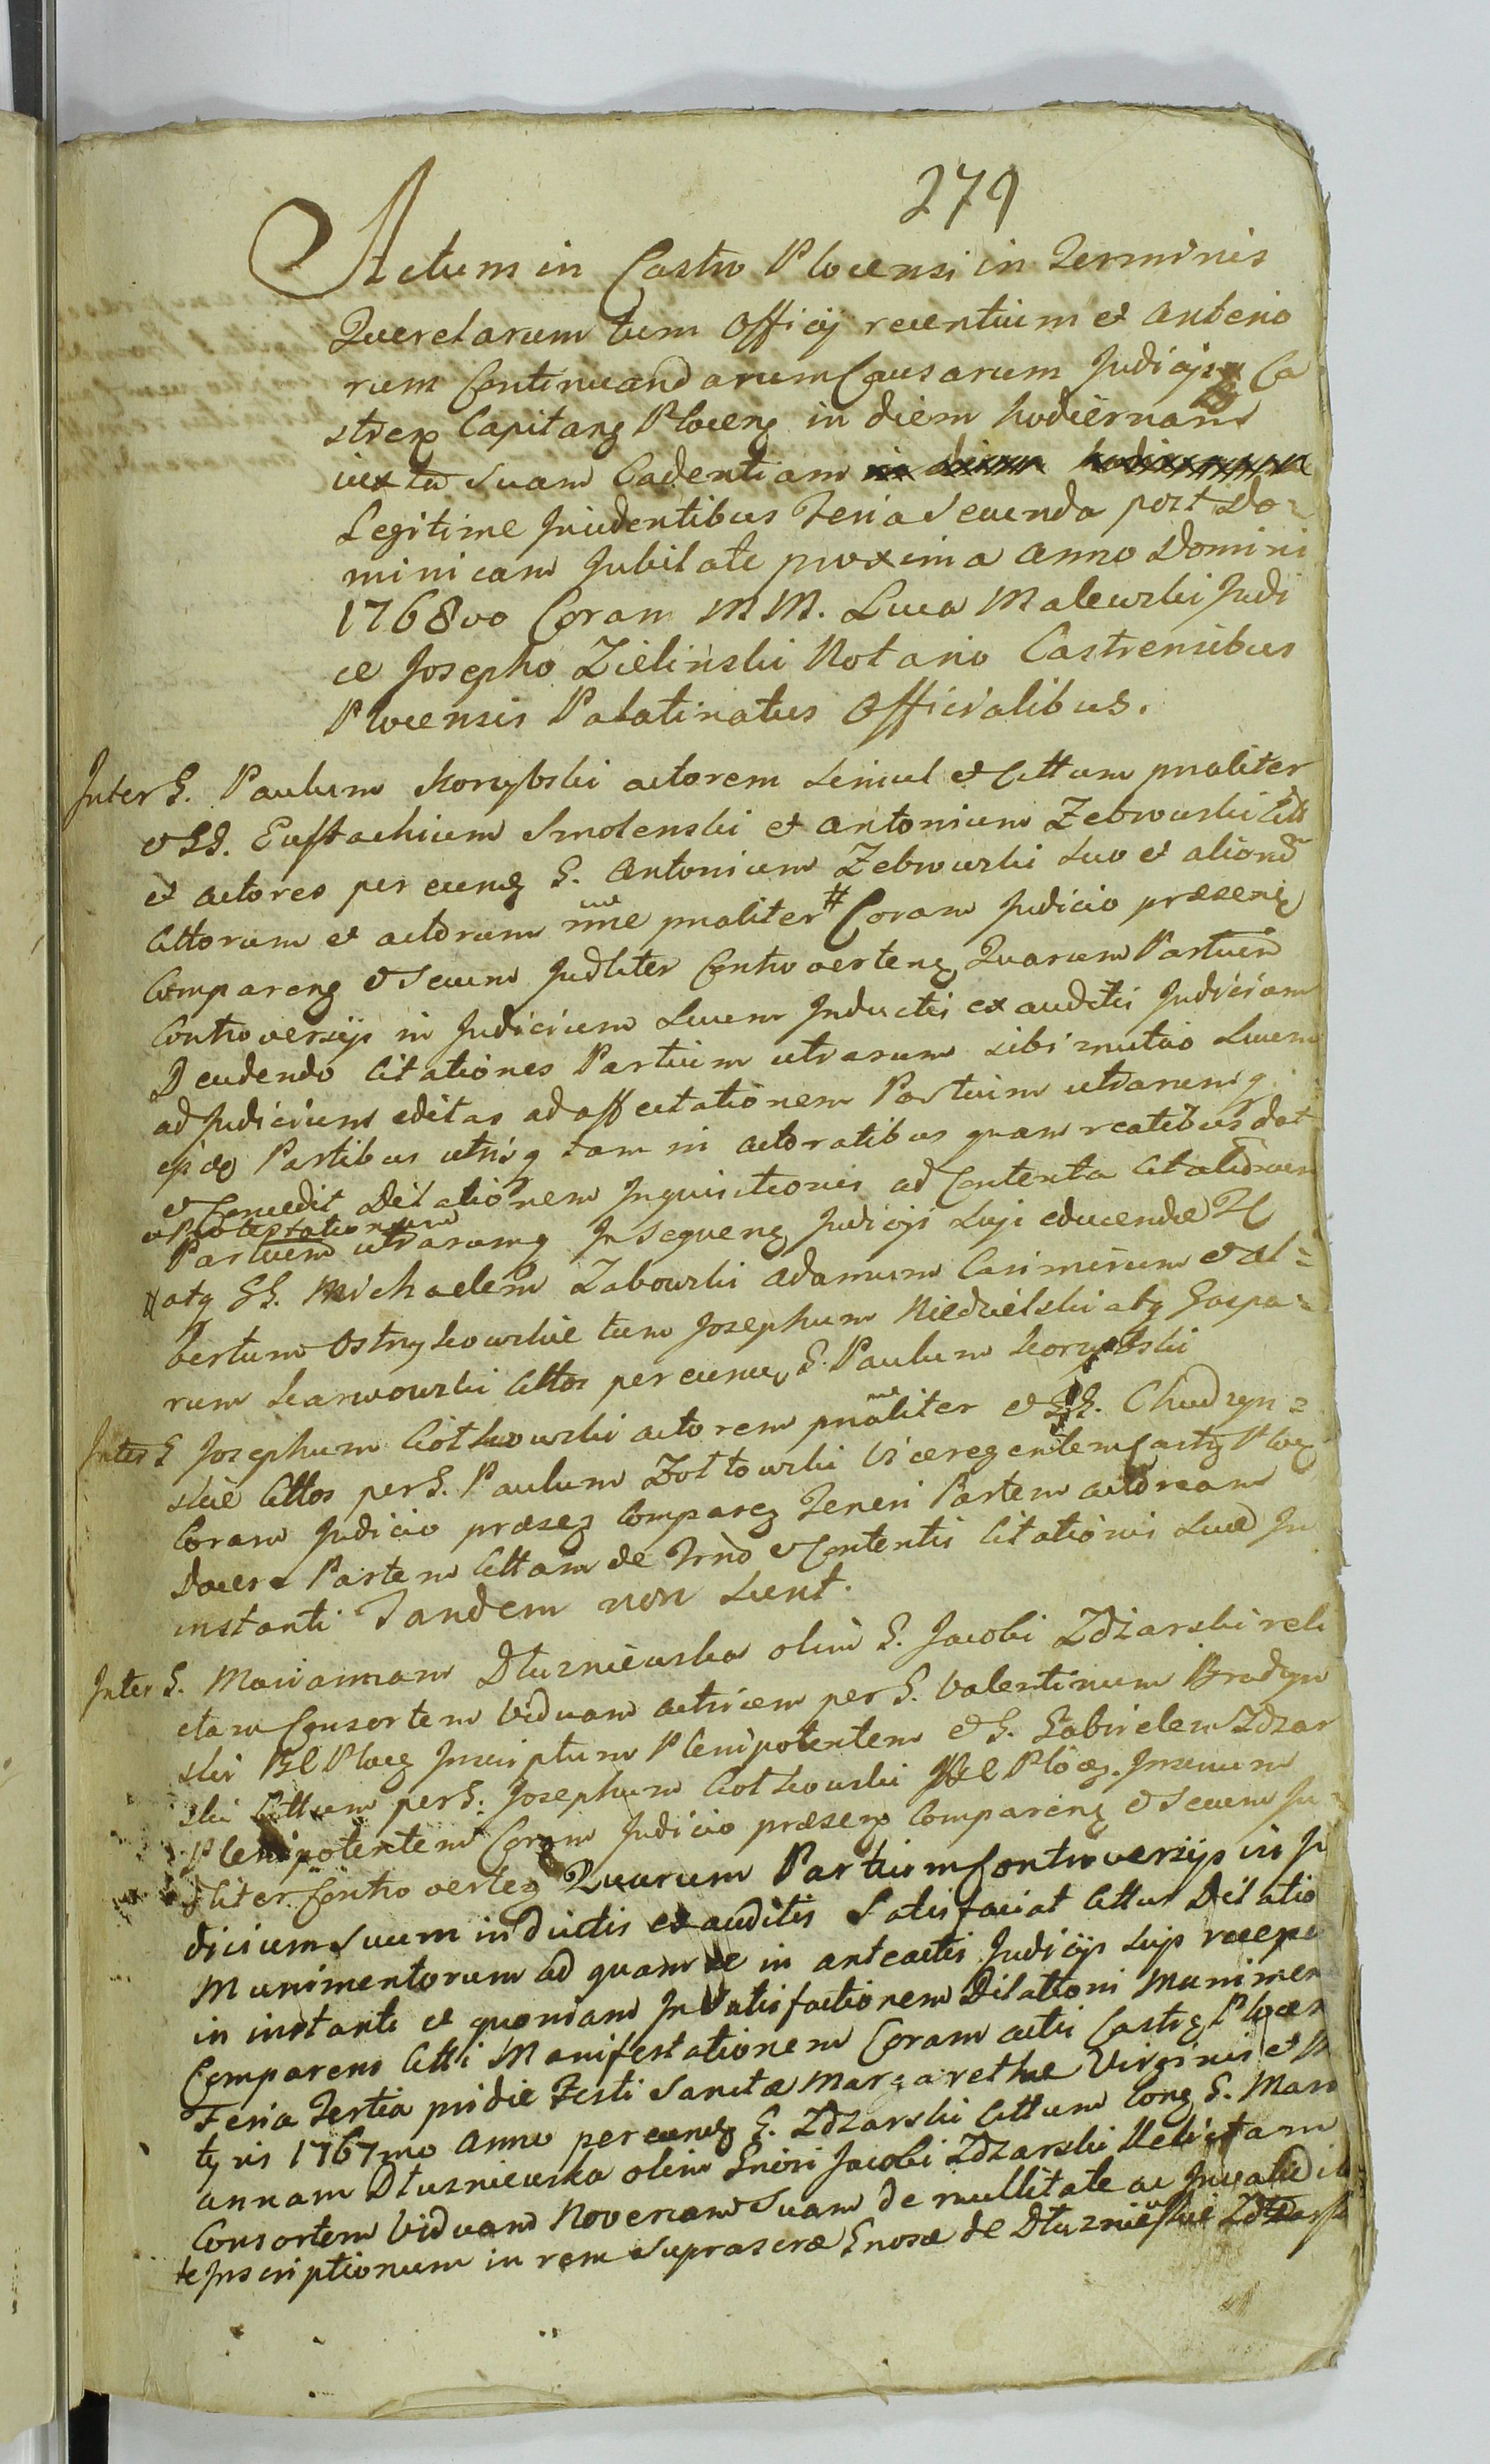 279
Actum in Castro Plocensi in Terminis
Querelarum tum Officij recentium et anterio
rum Continuandarum Causarum Judicijs Ca
stren Capitang Plocen in diem hodiernam
iuxta suam Cadentiam in diem hodiernam
Legitime Incidentibus Feria Secunda post Do=
minicam Jubilate proxima Anno Domini
1768vo Coram MM. Luca Malewski Judi
ce Josepho Zieliński Notario Castrensibus
Plocensis Palatinatus Officialibus.
Inter G. Paulum Korzybski actorem simul et Cittum pnaliter
et GG. Eustachium Smolenski et Antonium Zebrowski Citt
et actores per eund G. Antonium Zebrowski suo et aliord
Cittorum et actorum nne pnaliter # Coram Judicio præsen
Comparen et secum Judliter Controverten Quarum Partium
Controversijs in Judicium suum Inductis exauditis Judicium
Decudendo Citationes Partium utrarum sibi mutuo suum
ad Judicium editas ad affectationem Partium utrarumq
ijsdem Partibus utrisq tam in actoratibus quam reatibus dat
et Concedit Dilationem Inquisitionis ad Contenta Citationum
et Protestationum
Partium utrarumq In sequen Judicijs suji educendæ
# atq GG. Michaelem Zabowski Adamum Casimirum et Al=
bertum Ostrzykowskie tum Josephum Niedzielski atq Gaspa=
rum Karwowski Cittos per eund G. Paulum Korzybski
Inter G Josephum Ciotkowski actorem pnaliter et GG. Chudzyn=
skie Cittos per G. Paulum Zołtowski Viceregentem Castr Ploc
Coram Judicio præsen Comparen Teneri Partem actoream
Docere Partem Cittam de Trno et Contentis Citationis suæ In
instanti Tandem non sunt.
Inter G. Mariannam Dłuzniewska olim G. Jacobi Zdżarski reli
ctam Consortem Viduam actricem per G. Valentinum Bradzyn
ski Ploc Inscriptum Plenipotentem et G. Gabrielem Zdzar
ski Cittum per G. Josephum Ciotkowski Ploc.
Plenipotentem Coram Judicio præsen Comparen et secum Ju=
dliter Controverten Quarum Partium Controversijs in Ju
dicium suum inductis exauditis Satisfaciat Cittus Dilatio
Munimentorum ad quam se in anteactis Judicijs suis recepe
in instanti et quoniam In Satisfactionem Dilationi Munimen
Comparens Citti Manifestationem Coram actis Castr Plocen
Feria Tertia pridie Festi Sanctæ Margarethæ Virginis et M
tyris 1767mo Anno per eund G. Zdzarski Cittum Cong G. Mari
annam Dłuzniewska olim Gnosi Jacobi Zdzarski Relictam
Consortem Viduam Novercam suam de nullitate ac Invalidita
te Inscriptionum in rem supraseræ Gnosæ de Dłuzniewskie Zdżarsk